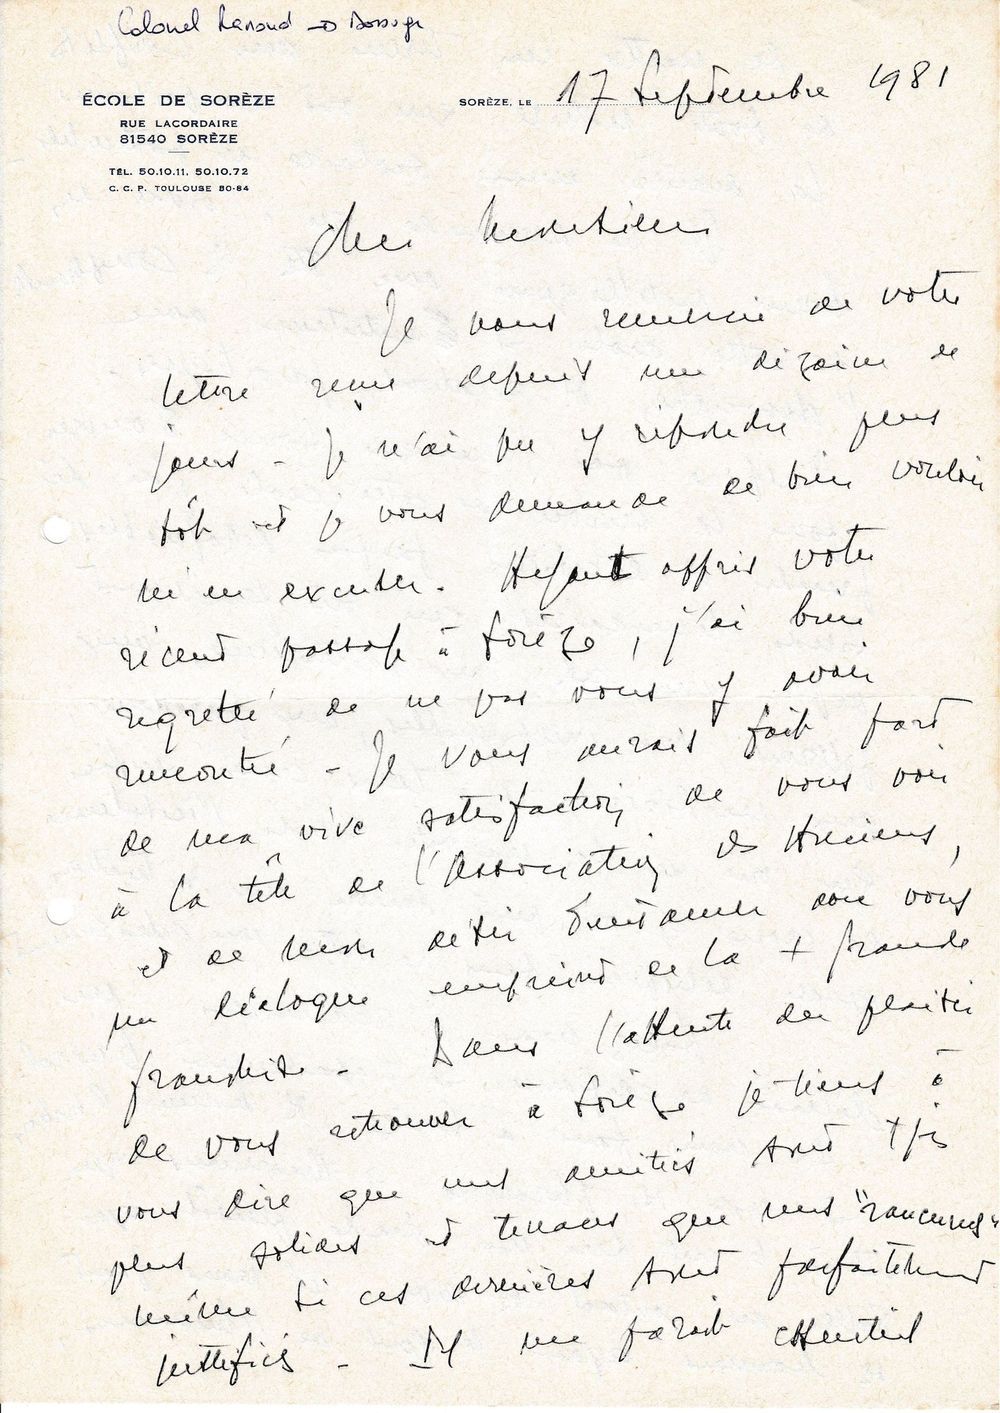 Colonel Renaud → Dossogne
ÉCOLE DE SORÈZE
RUE LACORDAIRE
81540 SORÈZE
TÉL. 50.10.11. 50.10.72
C. C. P. TOULOUSE 80-84
SORÈZE, LE 17 Septembre 1981
Cher Monsieur
Je vous remercie de votre
lettre reçue depuis une dizaine de
jours - Je n'ai pu y répondre plus
tôt et je vous demande de bien vouloir
m'en excuser. Ayant appris votre
récent passage à Sorèze, j'ai bien
regretté de ne pas vous y avoir
rencontré - Je vous aurais fait part
de ma vive satisfaction de vous voir
à la tête de l'Association des Anciens,
et de mon désir d'entamer avec vous
un dialogue empreint de la + grande
franchise - Dans l'attente du plaisir
de vous retrouver à Sorèze je tiens à
vous dire que nos amitiés sont tjs
plus solides et tenaces que nos "rancunes"
même si ces dernières sont parfaitement
justifiées - Il me paraît essentiel